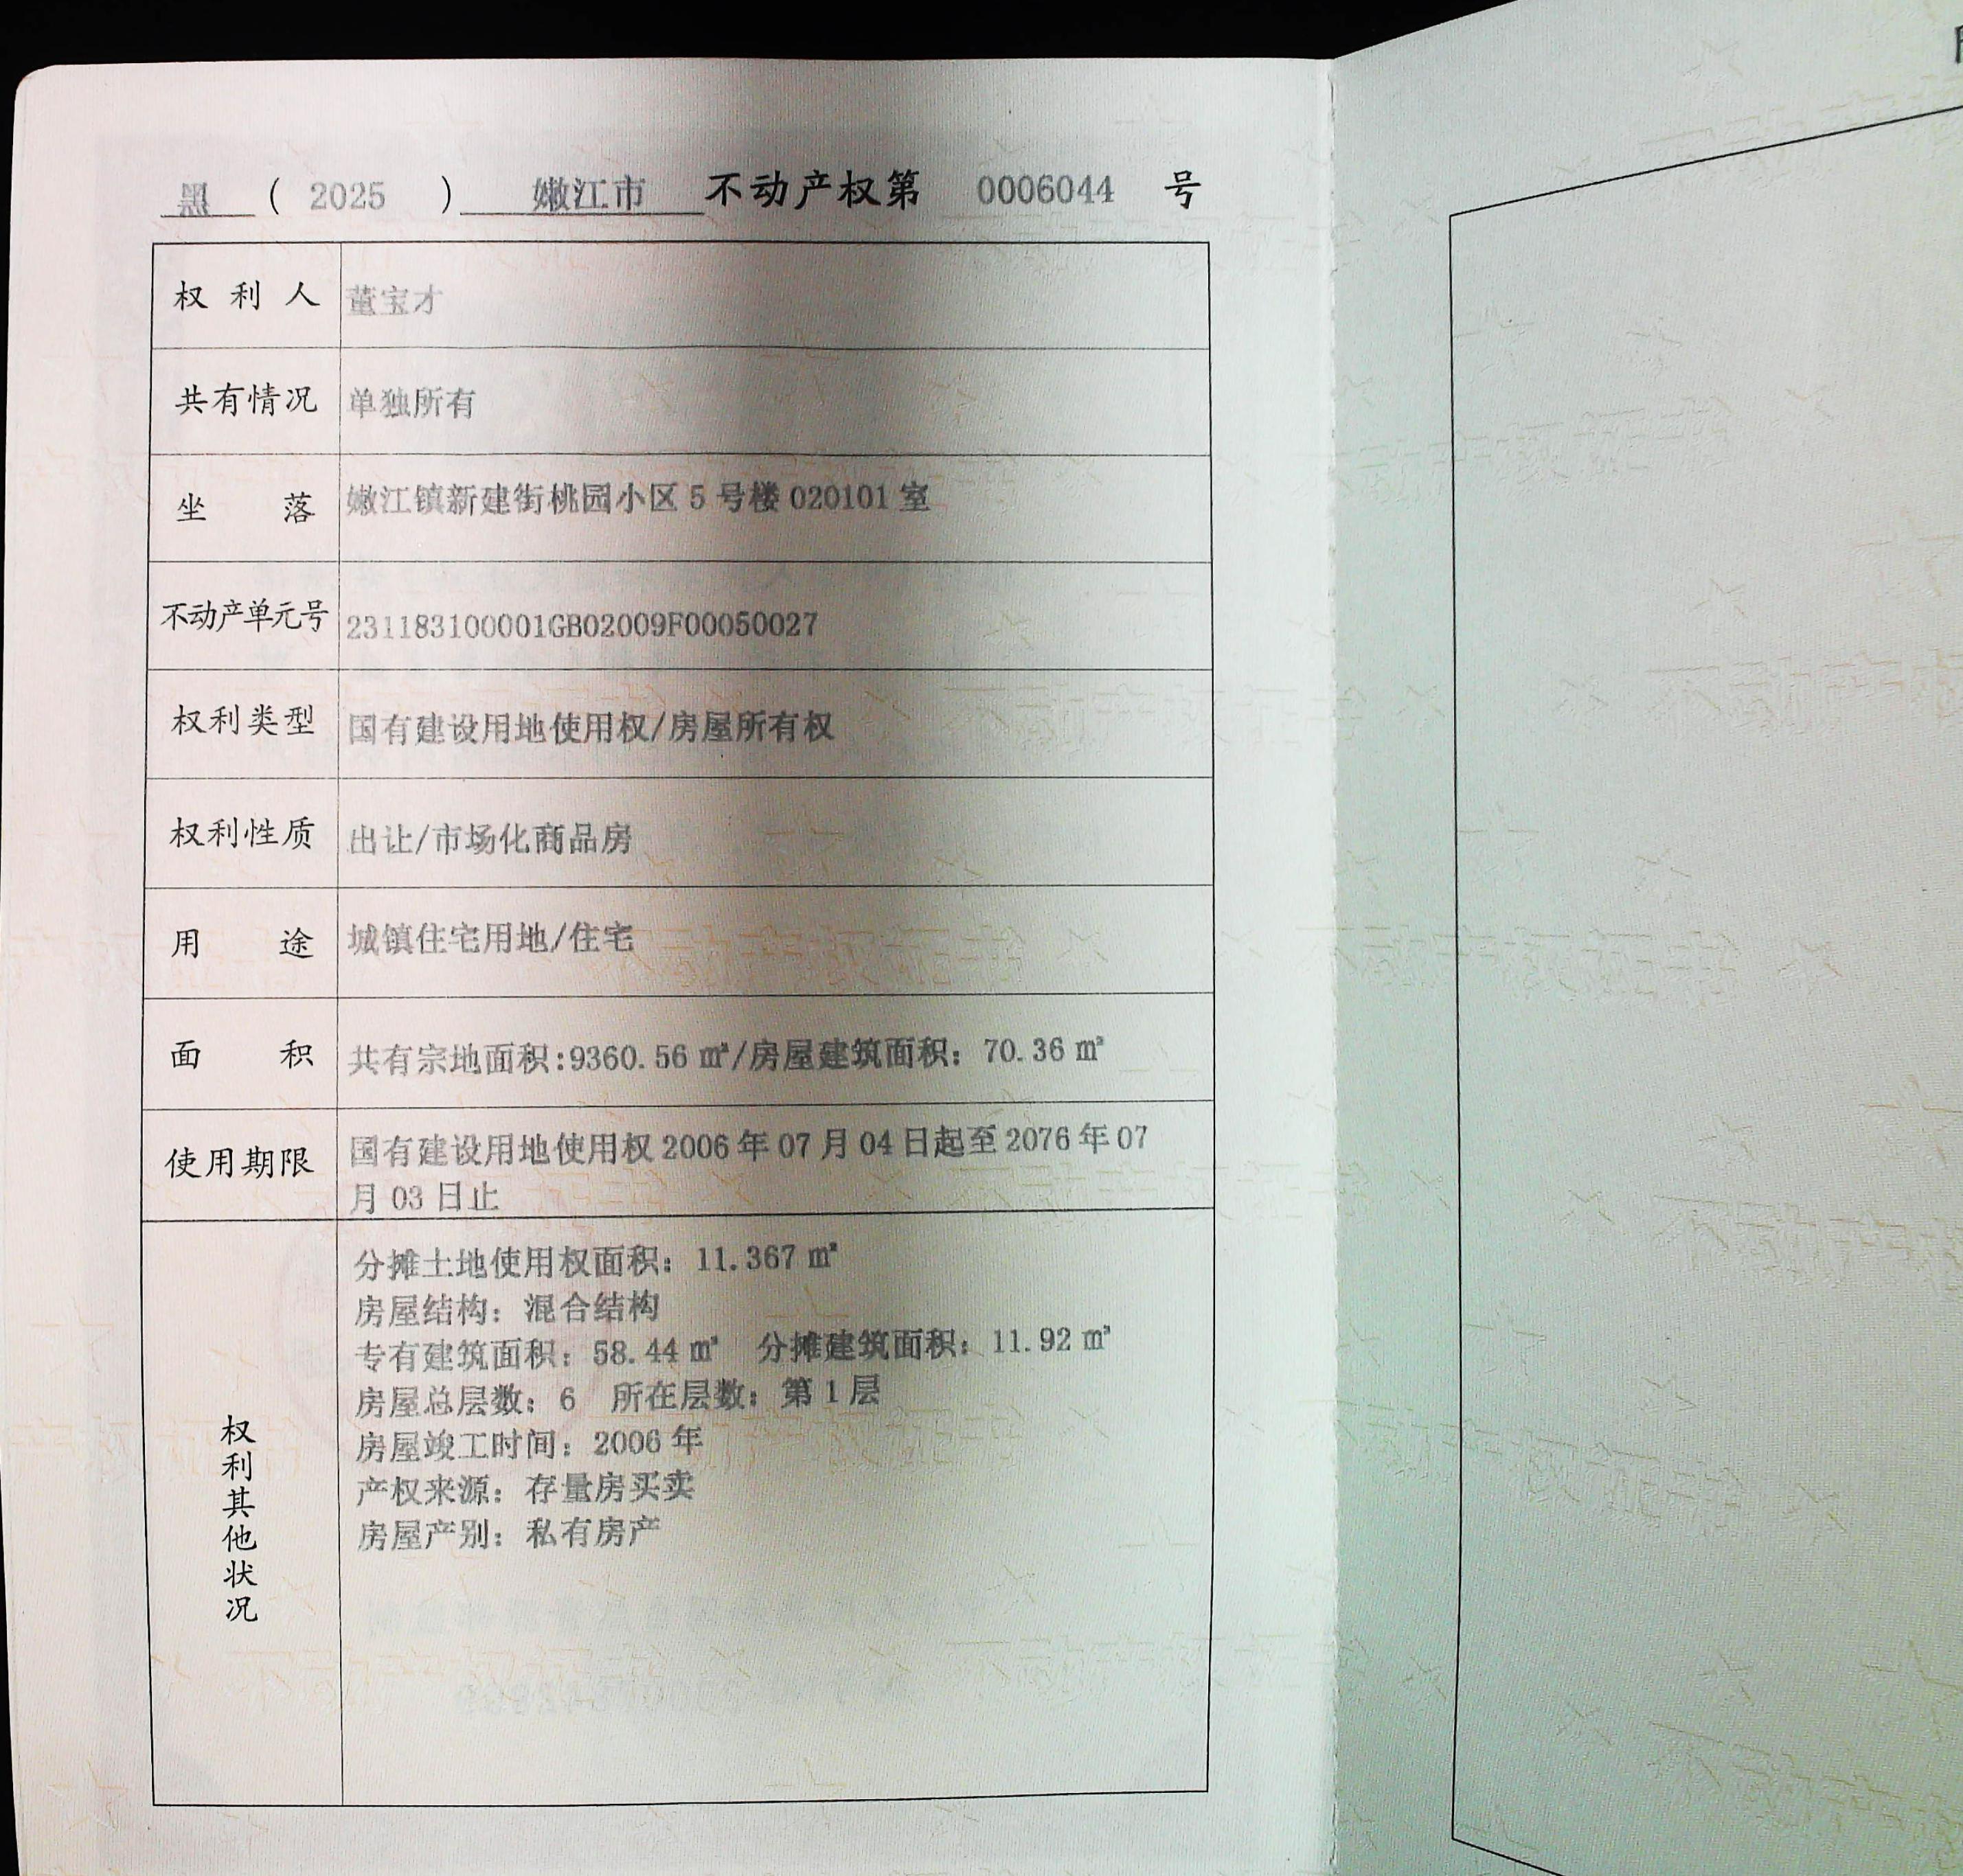 黑 ( 2025 ) 嫩江市 不动产权第 0006044 号
权利人 董宝才
共有情况 单独所有
坐落 嫩江镇新建街桃园小区 5 号楼 020101 室
不动产单元号 231183100001GB02009F00050027
权利类型 国有建设用地使用权/房屋所有权
权利性质 出让/市场化商品房
用途 城镇住宅用地/住宅
面积 共有宗地面积:9360.56 ㎡/房屋建筑面积: 70.36 ㎡
使用期限 国有建设用地使用权 2006 年 07 月 04 日起至 2076 年 07
月 03 日止
权利其他状况
分摊土地使用权面积: 11.367 ㎡
房屋结构: 混合结构
专有建筑面积: 58.44 ㎡ 分摊建筑面积: 11.92 ㎡
房屋总层数: 6 所在层数: 第 1 层
房屋竣工时间: 2006 年
产权来源: 存量房买卖
房屋产别: 私有房产